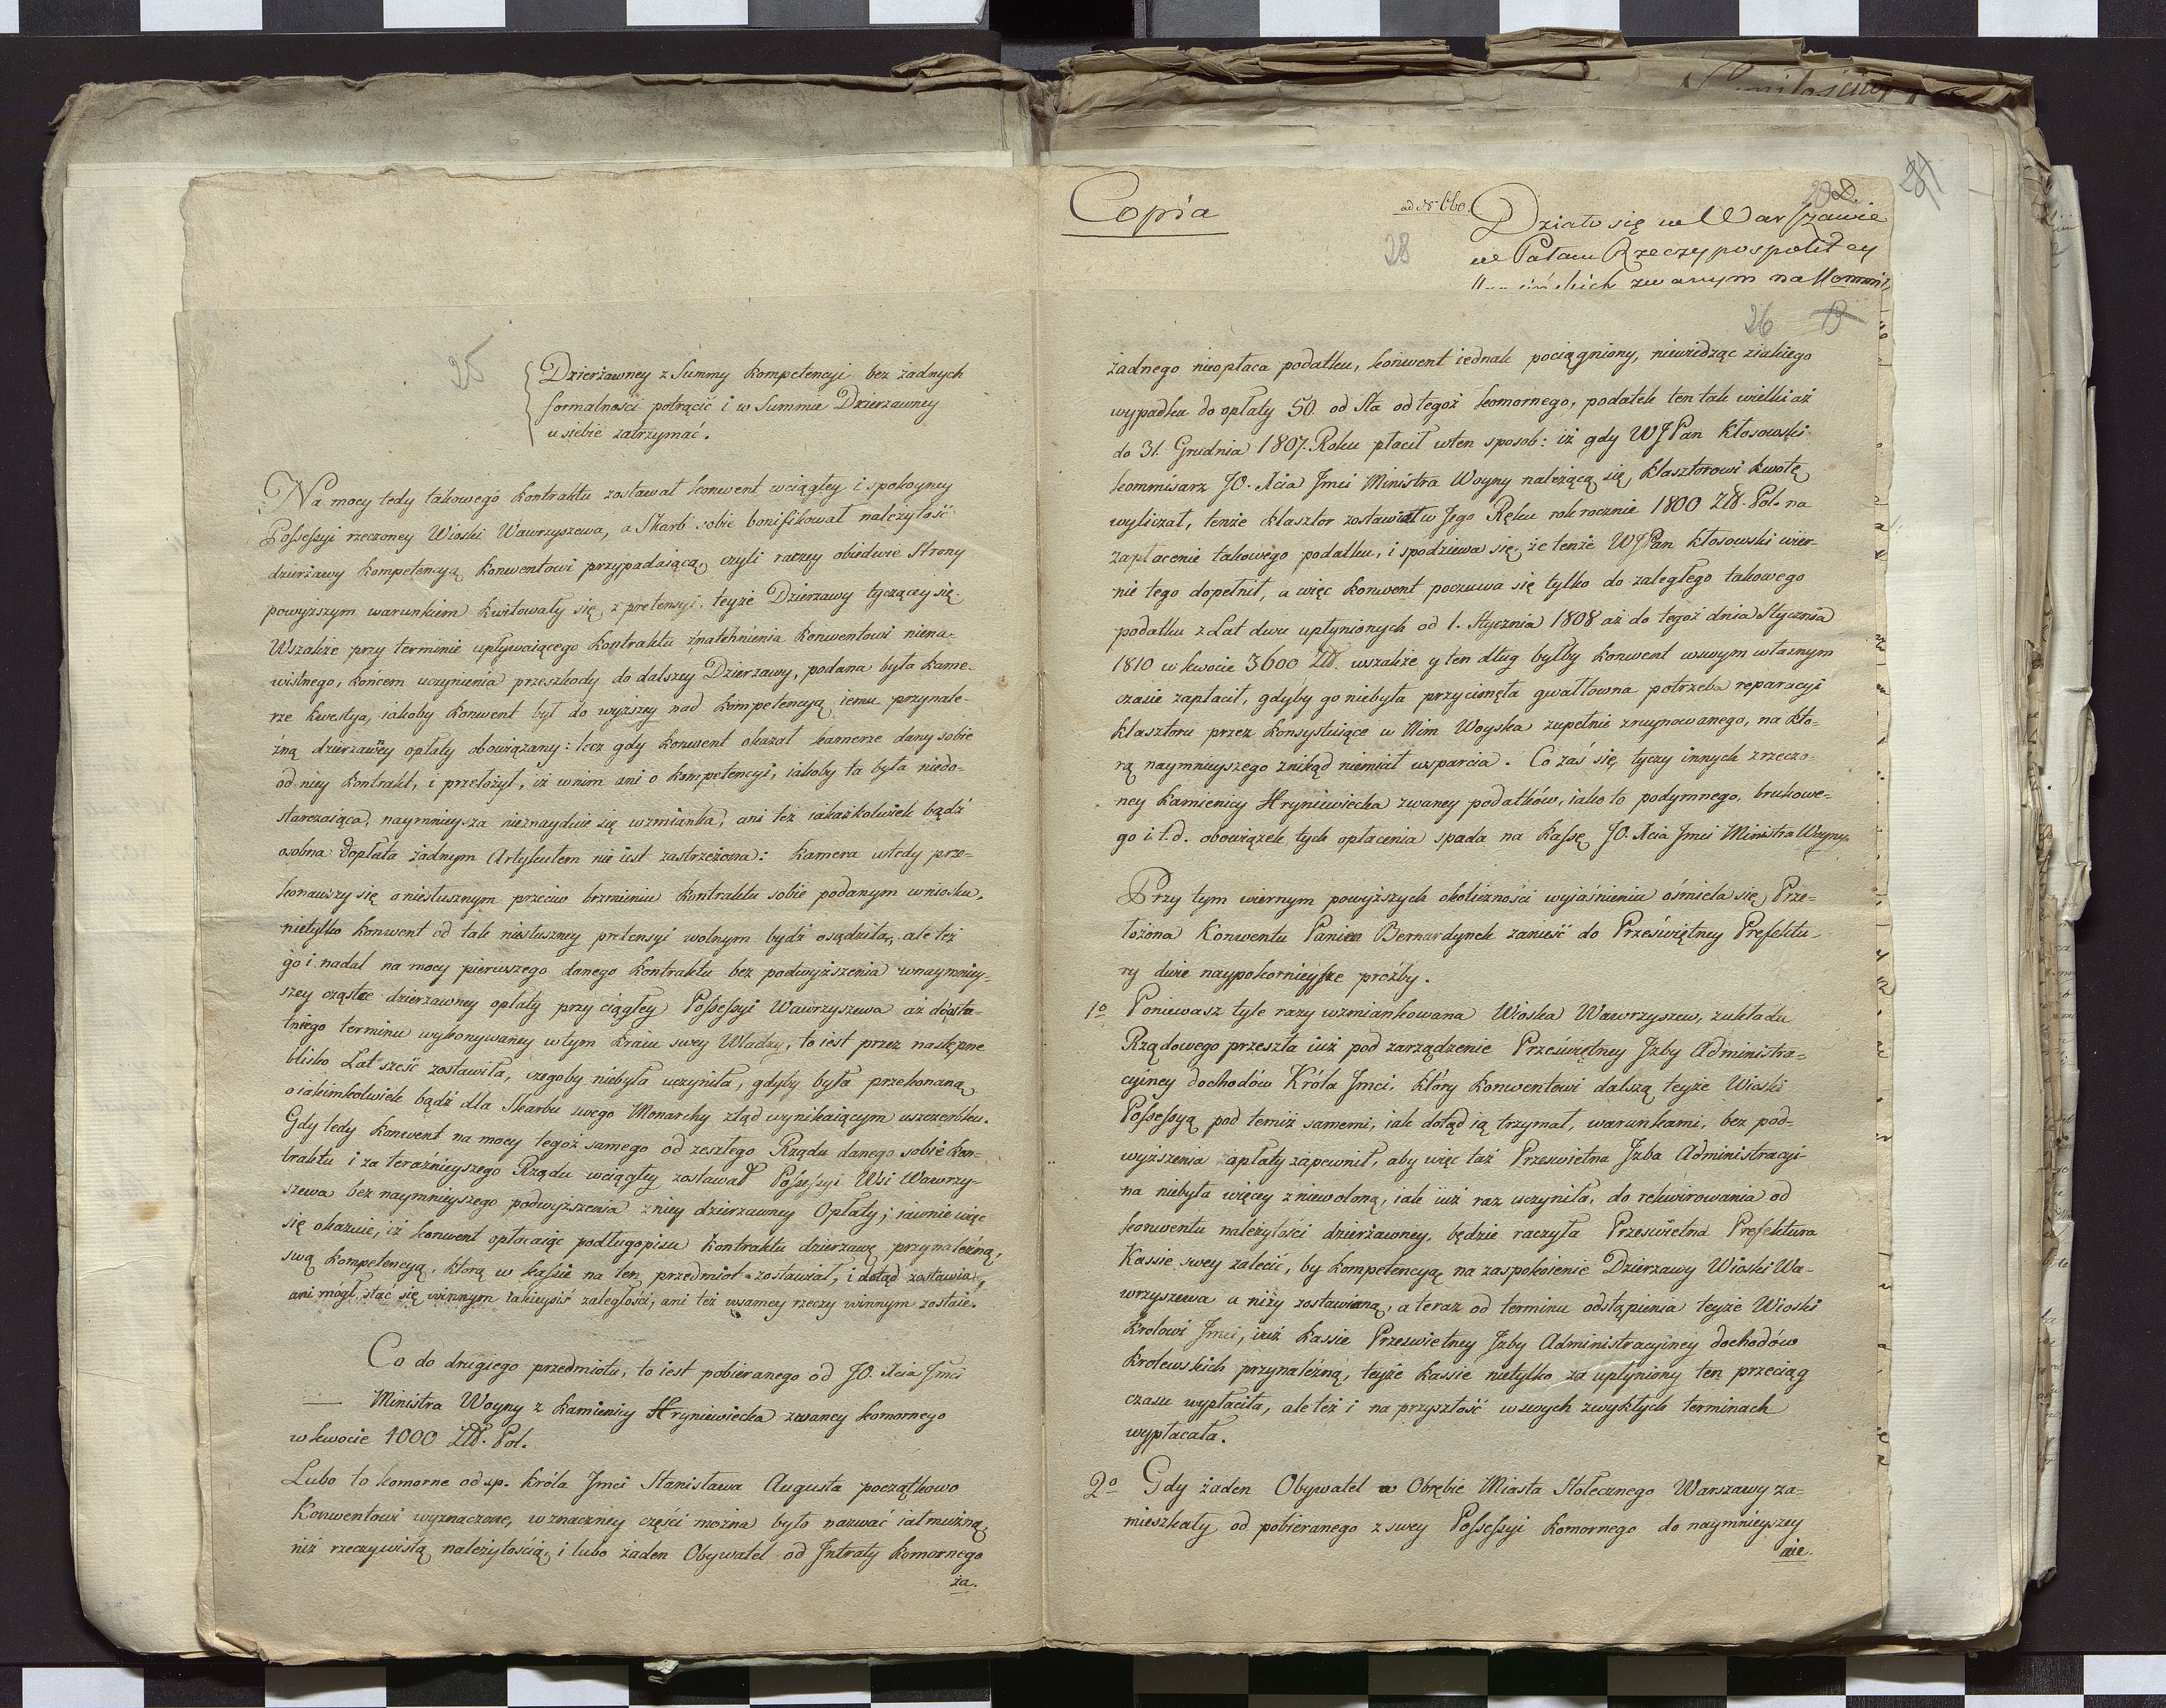 25
Dzierżawney z Summy kompetencyi bez żadnych
formalności potrącić i w Summie Dzierżawney
u siebie zatrzymać.
Na mocy tedy takowego kontraktu zostawał konwent wciągłey i spokoyney
Possessyi rzeczoney Wioski Wawrzyszewa, a Skarb sobie bonifikował należytość
dzierżawy kompetencyą konwentowi przypadaiącą, czyli raczey obiedwie Strony
powyższym warunkiem kwitowały się z pretensyi, teyże Dzierżawy tyczącey się.
Wszakże przy terminie upływaiącego kontraktu znatchnienia konwentowi niena-
wistnego, końcem uczynienia przeszkody do dalszey Dzierżawy, podana była kame-
rze kwestya, iakoby konwent był do wyższey nad kompetencyą iemu przynale-
żną dzierzawney opłaty obowiązany: lecz gdy konwent okazał kamerze dany sobie
od niey kontrakt, i przełożył, iż wnim ani o kompetencyi, iakoby ta była niedo-
starczaiąca, naymnieysza nieznayduie się wzmianka, ani też iakażkolwiek bądź
osobna dopłata żadnym Artykułem nie iest zastrzeżona: kamera wtedy prze-
konawszy się o niesłusznym przeciw brzmieniu kontraktu sobie podanym wniosku,
nietylko konwent od tak niesłuszney pretensyi wolnym bydź osądziła, ale też
go i nadal na mocy pierwszego danego kontraktu bez podwyższenia wnaymniey-
szey cząstce dzierzawney opłaty przy ciągłey Possessyi Wawrzyszewa aż do osta-
tniego terminu wykonywaney wtym kraiu swey Władzy, to iest przez następne
blisko Lat sześć zostawiła, czegoby niebyła uczyniła, gdyby była przekonaną
o iakimkolwiek bądź dla Skarbu swego Monarchy ztąd wynikaiącym uszczerbku.
Gdy tedy konwent na mocy tegoż samego od zeszłego Rządu danego sobie kon-
traktu i za teraźnieyszego Rządu wciągłey zostawał Possessyi Wsi Wawrzy-
szewa bez naymnieyszego podwyższenia zniey dzierzawney Opłaty; iawnie więc
się okazuie, iż konwent opłacaiąc podług opisu kontraktu dzierzawę przynależną,
swą kompetencyą, którą w kassie na ten przedmiot zostawiał, i dotąd zostawia,
ani mógł stać się winnym iakieysiś zaległości, ani też wsamey rzeczy winnym zostaie.
Co do drugiego przedmiotu, to iest pobieranego od JO. Xcia Jmci
Ministra Woyny z kamienicy Hryniewiecka zwaney komornego
w kwocie 4000 Złł. Pol.
Lubo to komorne od śp. króla Jmci Stanisława Augusta początkowo
Konwentowi wyznaczone, w znaczney części można było nazwać iałmużną,
niż rzeczywistą należytością, i lubo żaden Obywatel od Intraty komornego
ża.
Copia
ad N 660.
28
Działo się w Warszawie
w Pałacu Rzeczypospolitey
zwanym na
26
żadnego nieopłaca podatku, konwent iednak pociągniony, niewidząc ziakiego
wypadku do opłaty 50. od Sta od tegoż komornego, podatek ten tak wielki aż
do 31. Grudnia 1807. Roku płacił wten sposob: iż gdy WJPan Kłosowski
kommisarz JO. Xcia Jmci Ministra Woyny należącą się klasztorowi kwotę
wyliczał, tenże klasztor zostawiał w Jego Ręku rok rocznie 1800 Złł. Pol. na
zapłacenie takowego podatku, i spodziewa się, że tenże WJPan Kłosowski wier-
nie tego dopełnił, a więc konwent poczuwa się tylko do zaległego takowego
podatku z Lat dwu upłynionych od 1. Stycznia 1808 aż do tegoż dnia Stycznia
1810 w kwocie 3600 Złł. wszakże y ten dług byłby konwent wswym własnym
czasie zapłacił, gdyby go niebyła przycisnęła gwałtowna potrzeba reparacyi
klasztoru przez konsystuiące w Nim Woyska zupełnie zruynowanego, na kto-
rą naymnieyszego znikąd niemiał wsparcia. Co zaś się tyczy innych zrzeczo-
ney kamienicy Hryniewiecka zwaney podatków, iako to podymnego, brukowe-
go i.t.d. obowiązek tych opłacenia spada na Kassę JO. Xcia Jmci Ministra Woyny.
Przy tym wiernym powyższych okoliczności wyiaśnieniu ośmiela się Prze-
łożona Konwentu Panien Bernardynek zanieść do Przeświętney Prefektu-
ry dwie naypokornieysze proźby.
1o Poniewasz tyle razy wzmiankowana Wioska Wawrzyszew, zukładu
Rządowego przeszła iuż pod zarządzenie Prześwietney Izby Administra-
cyiney dochodów Króla Jmci, który konwentowi dalszą teyże Wioski
Possessyą pod temiż samemi, iak dotąd ią trzymał, warunkami, bez pod-
wyższenia opłaty zapewnił, aby więc taż Prześwietna Izba Administracyi-
na niebyła więcey zniewoloną, iak iuż raz uczyniła, do rekwirowania od
konwentu należytości dzierżawney, będzie raczyła Prześwietna Prefektura
Kassie swey zalecić, by kompetencyą na zaspokoienie Dzierzawy Wioski Wa-
wrzyszewa u niży zostawianą, a teraz od terminu odstąpienia teyże Wioski
Krolowi Jmci, iuż kassie Prześwietney Izby Administracyiney dochodów
krolewskich przynależną, teyże kassie nietylko za upłyniony ten przeciąg
czasu wypłaciła, ale też i na przyszłość wswych zwykłych terminach
wypłacała.
2o Gdy żaden Obywatel w Obrębie Miasta Stołecznego Warszawy za-
mieszkały, od pobieranego z swey Possessyi komornego do naymnieyszey
nie.